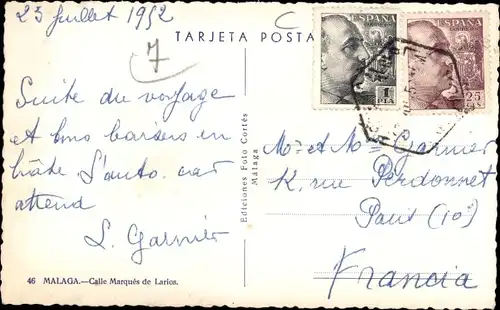 25 juillet 1952
7
C
TARJETA POSTA
ESPAÑA
1
PTA
ESPAÑA
25
Suite du voyage
et bons baisers en
hâte l'auto. car
attend
L. Garnier
Ediciones Foto Cortés
Málaga
Mr et Mme Garnier
rue Perdonnet
Paris (10)
Francia
46 MALAGA.—Calle Marqués de Larios.